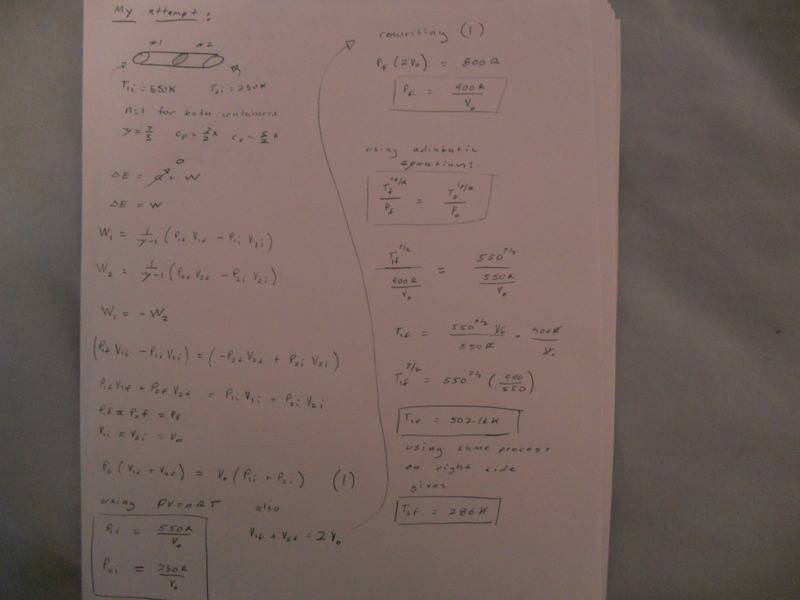 My attempt:
#1 #2
T1i = 550K T2i = 250K
n=1 for both containers
γ = 7/5 cp = 7/2 R cv = 5/2 R
0
ΔE = Q + W
ΔE = W
W1 = 1/(γ-1) (P1f V1f - P1i V1i)
W2 = 1/(γ-1) (P2f V2f - P2i V2i)
W1 = - W2
(P1f V1f - P1i V1i) = (-P2f V2f + P2i V2i)
P1f V1f + P2f V2f = P1i V1i + P2i V2i
P1f = P2f = Pf
V1i = V2i = V0
Pf (V1f + V2f) = V0 (P1i + P2i) (1)
using PV=nRT
P1i = 550R/V0
P2i = 250R/V0
also
V1f + V2f = 2V0
rewriting (1)
Pf (2V0) = 800R
Pf = 400R/V0
using adiabatic
equations:
Tf^(cp/R)/Pf = T0^(cp/R)/P0
Tf^(7/2)/(400R/V0) = 550^(7/2)/(550R/V0)
T1f = 550^(7/2) V0/550R · 400R/V0
T1f^(7/2) = 550^(7/2) (400/550)
T1f = 502.16K
using same process
on right side
gives
T2f = 286K